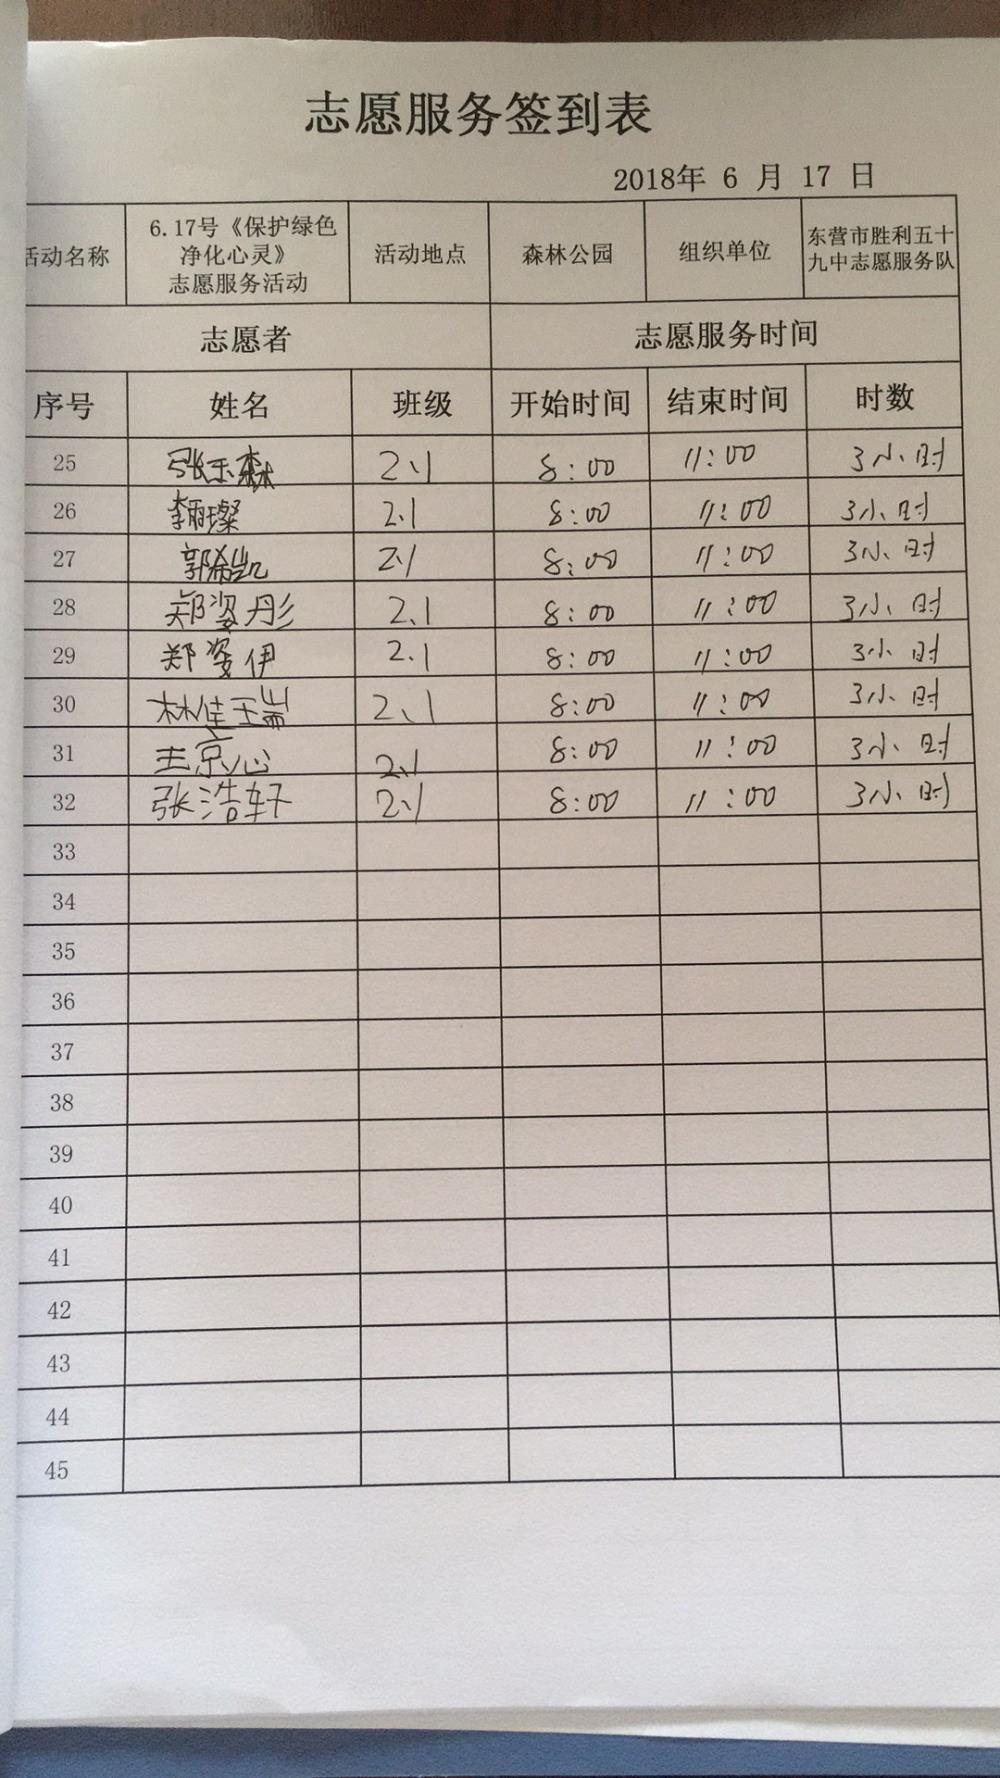 志愿服务签到表
2018年 6 月 17 日
活动名称 6.17号《保护绿色净化心灵》志愿服务活动 活动地点 森林公园 组织单位 东营市胜利五十九中志愿服务队
志愿者 志愿服务时间
序号 姓名 班级 开始时间 结束时间 时数
25 张玉森 2.1 8:00 11:00 3小时
26 李丽璨 2.1 8:00 11:00 3小时
27 郭希凯 2.1 8:00 11:00 3小时
28 郑姿彤 2.1 8:00 11:00 3小时
29 郑姿伊 2.1 8:00 11:00 3小时
30 林佳瑞 2.1 8:00 11:00 3小时
31 王京心 2.1 8:00 11:00 3小时
32 张浩轩 2.1 8:00 11:00 3小时
33
34
35
36
37
38
39
40
41
42
43
44
45